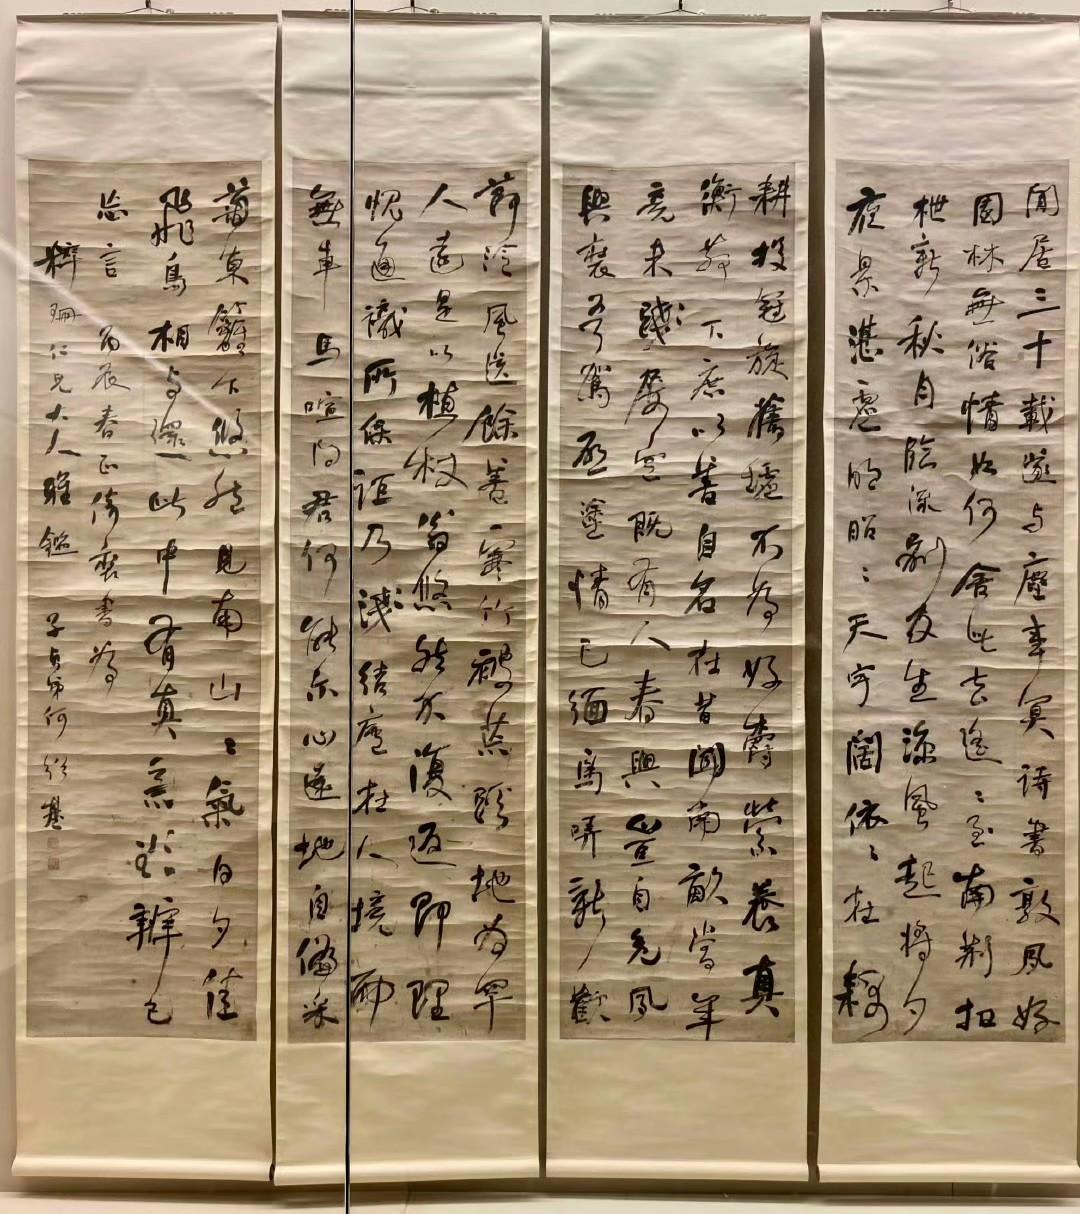 閒居三十載遂与塵事冥詩書敦夙好
園林無俗情如何舍此去遙〻至南荊扣
枻新秋月臨流別友生涼風起將夕
夜景湛虛明昭〻天宇闊依〻在耦
耕投冠旋舊墟不為好爵縈養真
衡茅下庶以善自名在昔聞南畝當年
竟未踐屢空既有人春興豈自免夙
興裝吾駕啟塗情已緬鳥哢新歡
節泠風送餘善寒竹被荒蹊地為罕
人遠是以植杖翁悠然不復返即理
愧通識所保詎乃淺結廬在人境而
無車馬喧問君何能尔心遠地自偏采
菊東籬下悠然見南山〻氣日夕佳
飛鳥相与還此中有真意欲辨已
忘言 丙辰春正倚裝書為
粹珊仁兄大人雅鑑 子貞弟何紹基